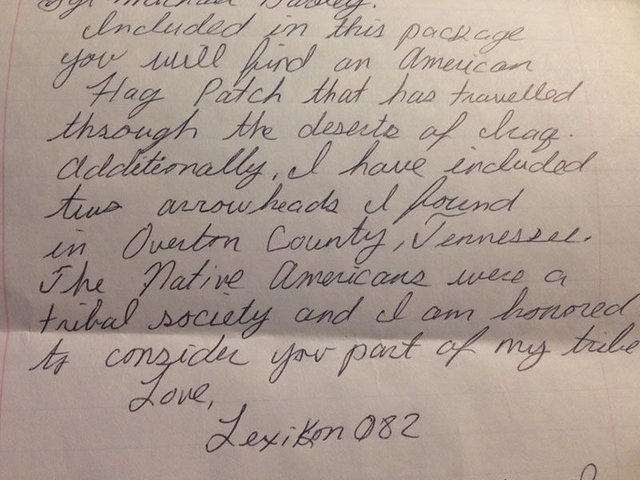 Sgt Michael
Included in this package
you will find an American
Flag Patch that has travelled
through the deserts of Iraq.
Additionally, I have included
two arrowheads I found
in Overton County, Tennessee.
The Native Americans were a
tribal society and I am honored
to consider you part of my tribe
Love,
Lexikon082